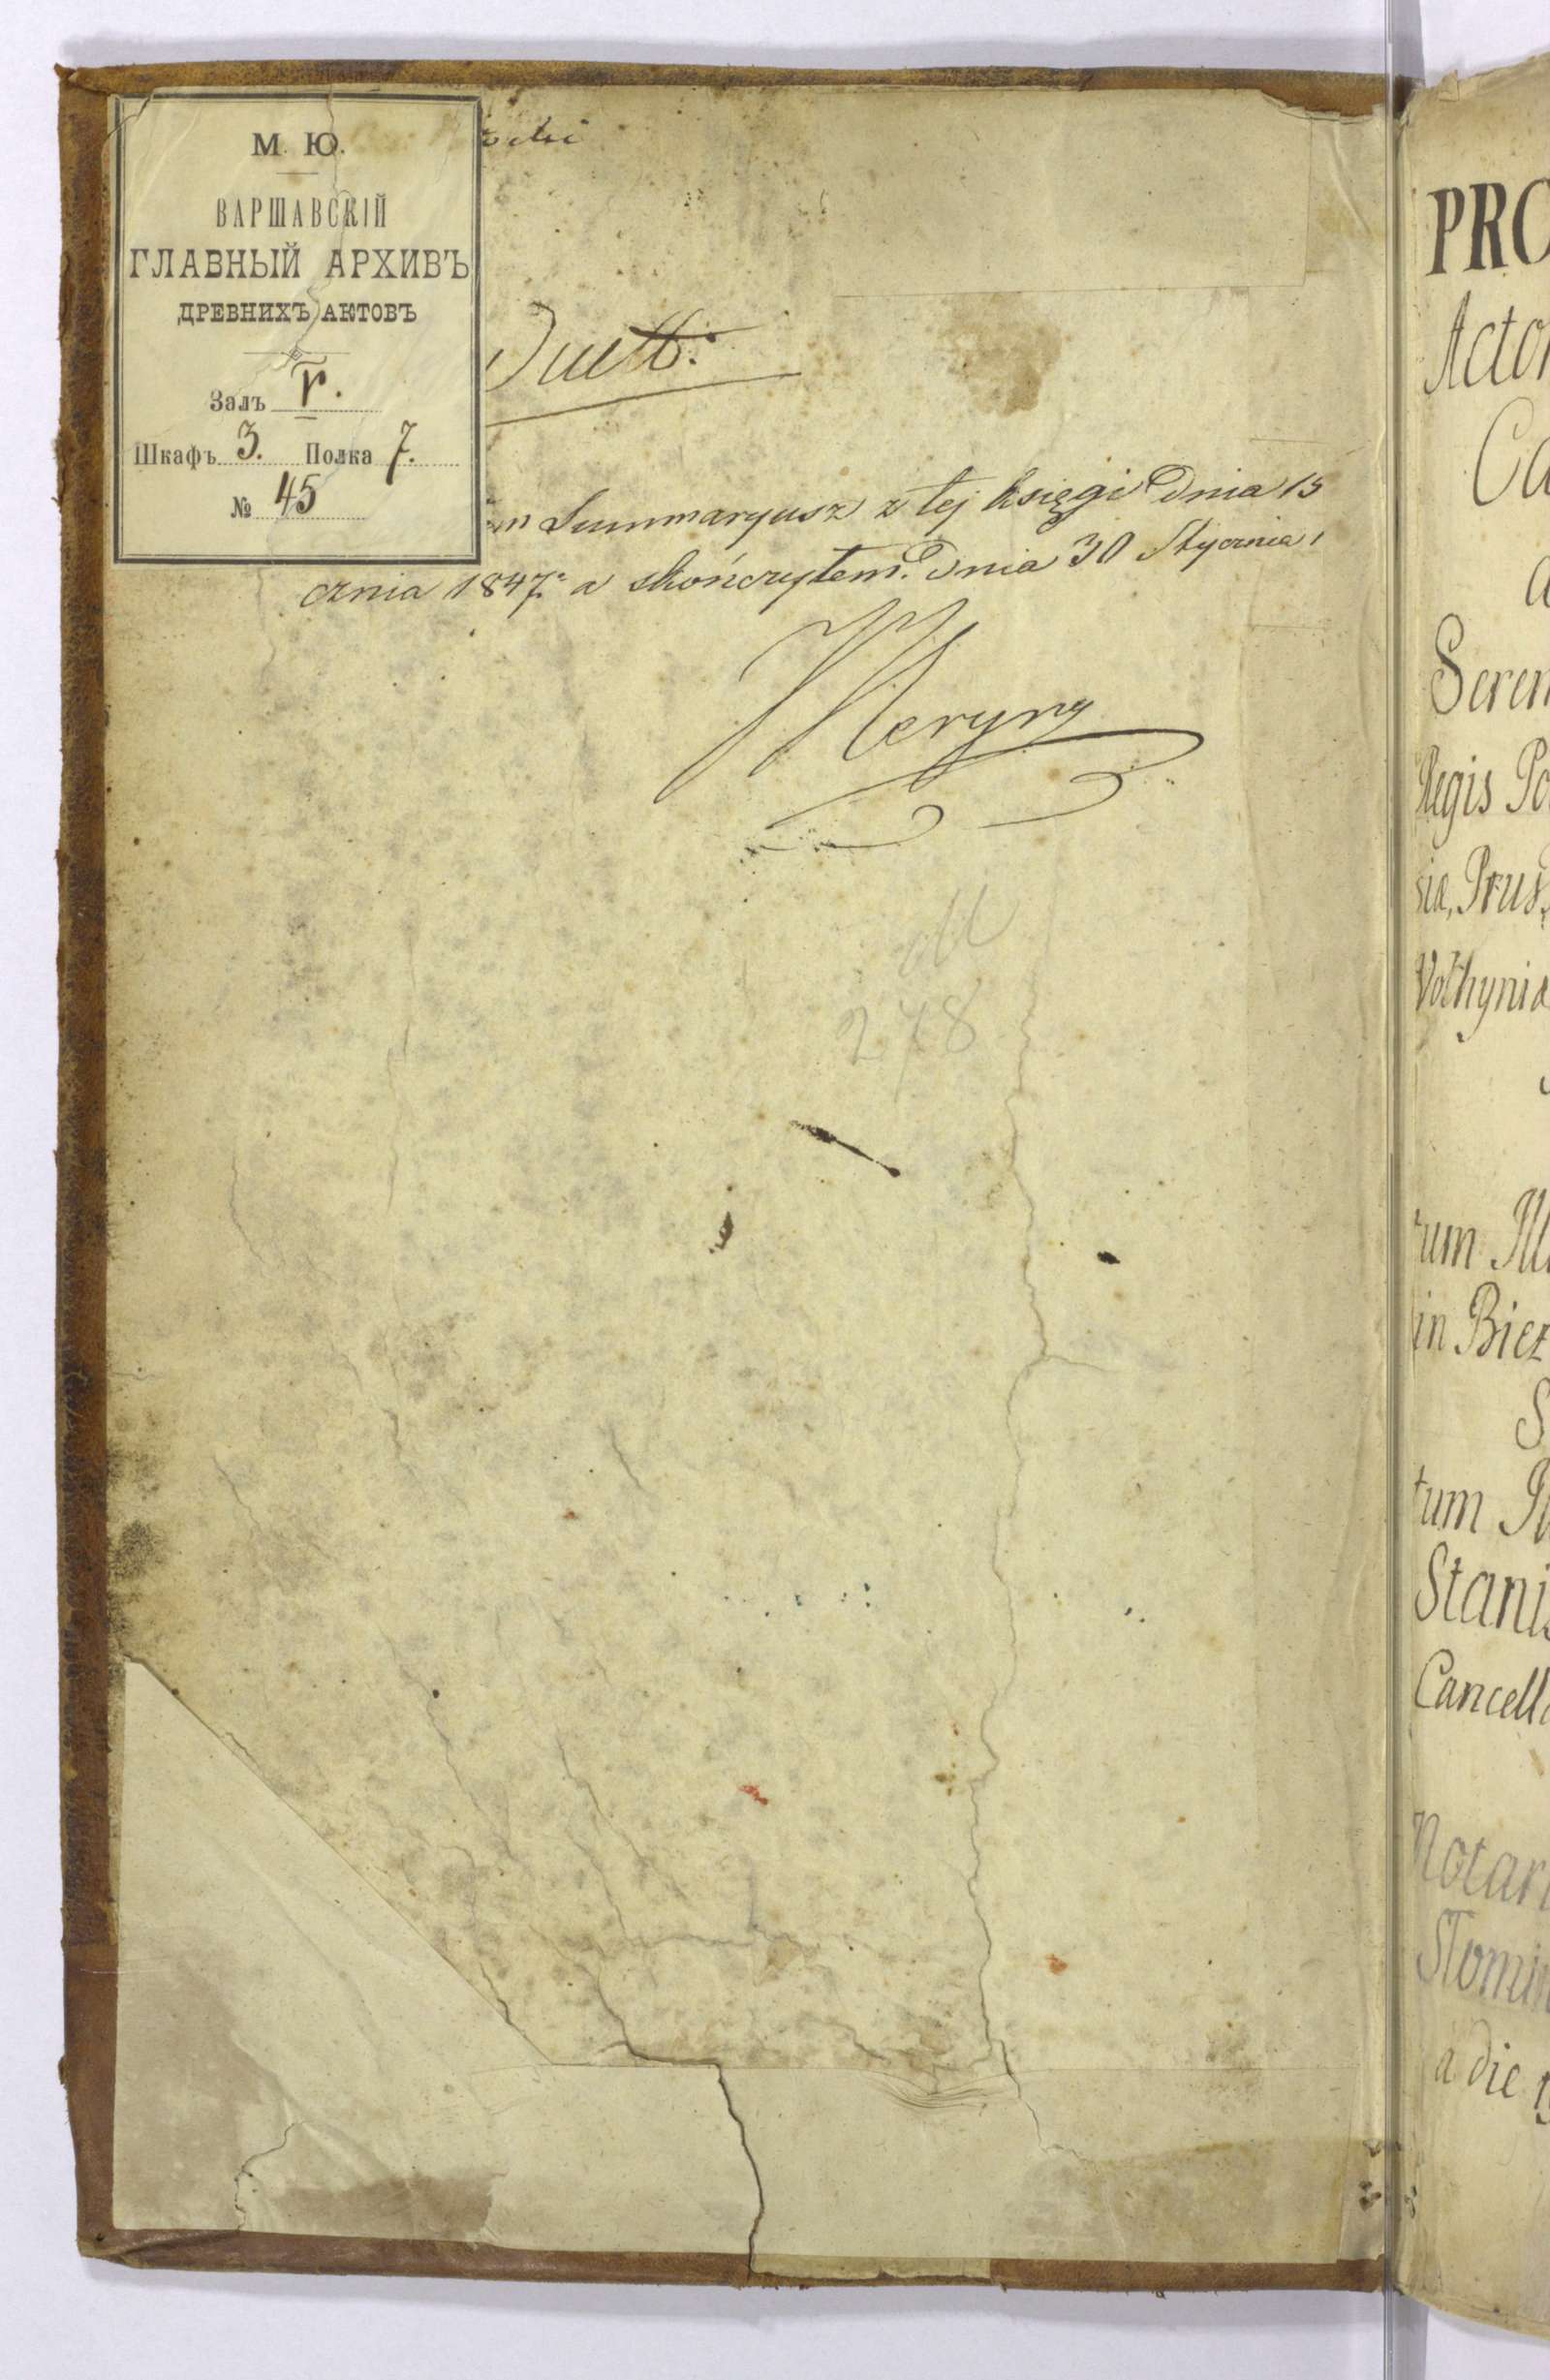 М. Ю.
ВАРШАВСКІЙ
ГЛАВНЫЙ АРХИВЪ
ДРЕВНИХЪ АКТОВЪ
Залъ V.
Шкафъ 3. Полка 7.
№ 45
m Summaryusz z tej księgi Dnia 15
cznia 1847. a skończyłem. Dnia 30 Stycznia
Heryng
278
PRO
Actor
Ca
a
Seren
Regis Po
siæ, Prus
Volhyniæ
rum Ill
in Biez
S
tum Il
Stanis
Cancella
Notari
Słomin
a die 1